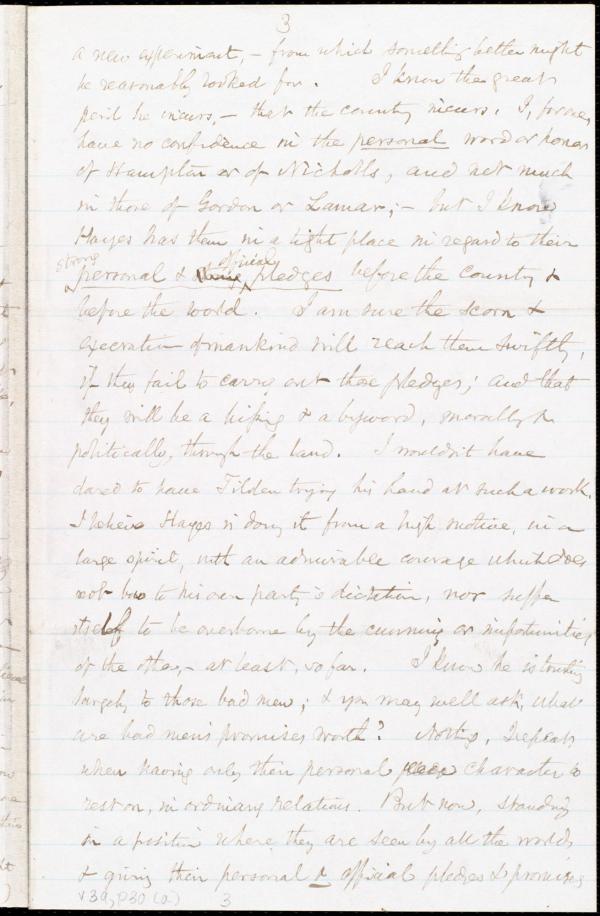 3
a new experiment, – from which something better might
be reasonably looked for. I know the great
peril he incurs, – that the country incurs. I, for one,
have no confidence in the personal word or honor
of Hampton or of Nicholls, and not much
in those of Gordon or Lamar; – but I know
Hayes has them in a tight place in regard to their
strong official
personal & pledges before the country &
before the world. I am sure the scorn &
execration of mankind will reach them swiftly,
if they fail to carry out those pledges; and that
they will be a hissing & a byword, morally &
politically, through the land. I wouldn't have
dared to have Tilden trying his hand at such a work.
I believe Hayes is doing it from a high motive, in a
large spirit, with an admirable courage which does
not bow to his own party's dictation, nor suffer
itself to be overborne by the cunning or importunities
of the other, – at least, so far. I know he is trusting
largely to those bad men; & you may well ask, what
are bad men's promises worth? Nothing, I repeat,
when having only their personal character to
rest on, in ordinary relations. But now, standing
in a position where they are seen by all the world,
& giving their personal & official pledges & promises
v.39, p30 (a) 3